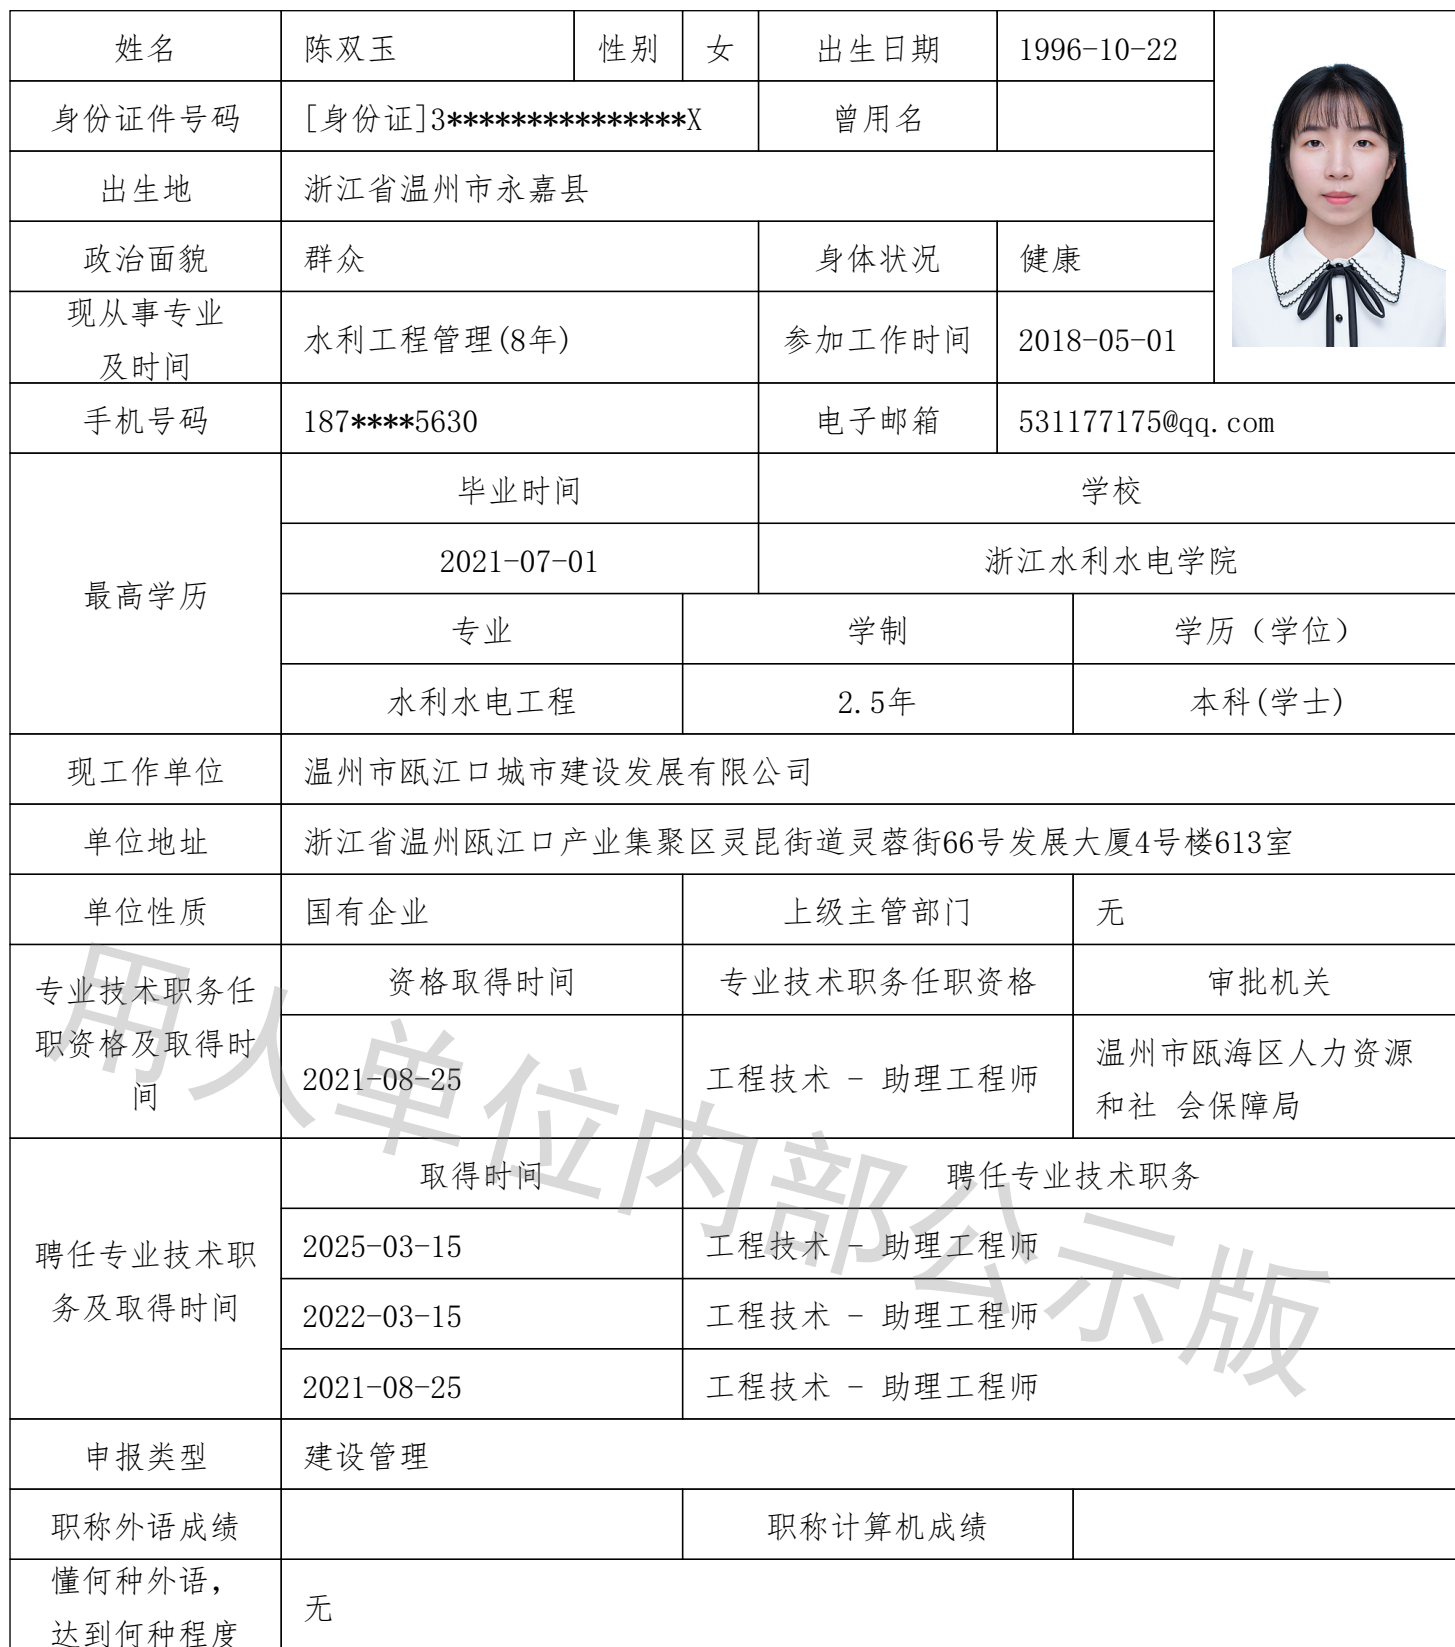 姓名 陈双玉 性别 女 出生日期 1996-10-22
身份证件号码 [身份证]3***************X 曾用名
出生地 浙江省温州市永嘉县
政治面貌 群众 身体状况 健康
现从事专业
及时间
水利工程管理(8年) 参加工作时间 2018-05-01
手机号码 187****5630 电子邮箱 531177175@qq.com
最高学历
毕业时间 学校
2021-07-01 浙江水利水电学院
专业 学制 学历（学位）
水利水电工程 2.5年 本科(学士)
现工作单位 温州市瓯江口城市建设发展有限公司
单位地址 浙江省温州瓯江口产业集聚区灵昆街道灵蓉街66号发展大厦4号楼613室
单位性质 国有企业 上级主管部门 无
专业技术职务任
职资格及取得时
间
资格取得时间 专业技术职务任职资格 审批机关
2021-08-25 工程技术 - 助理工程师
温州市瓯海区人力资源
和社 会保障局
聘任专业技术职
务及取得时间
取得时间 聘任专业技术职务
2025-03-15 工程技术 - 助理工程师
2022-03-15 工程技术 - 助理工程师
2021-08-25 工程技术 - 助理工程师
申报类型 建设管理
职称外语成绩 职称计算机成绩
懂何种外语，
达到何种程度
无
用人单位内部公示版